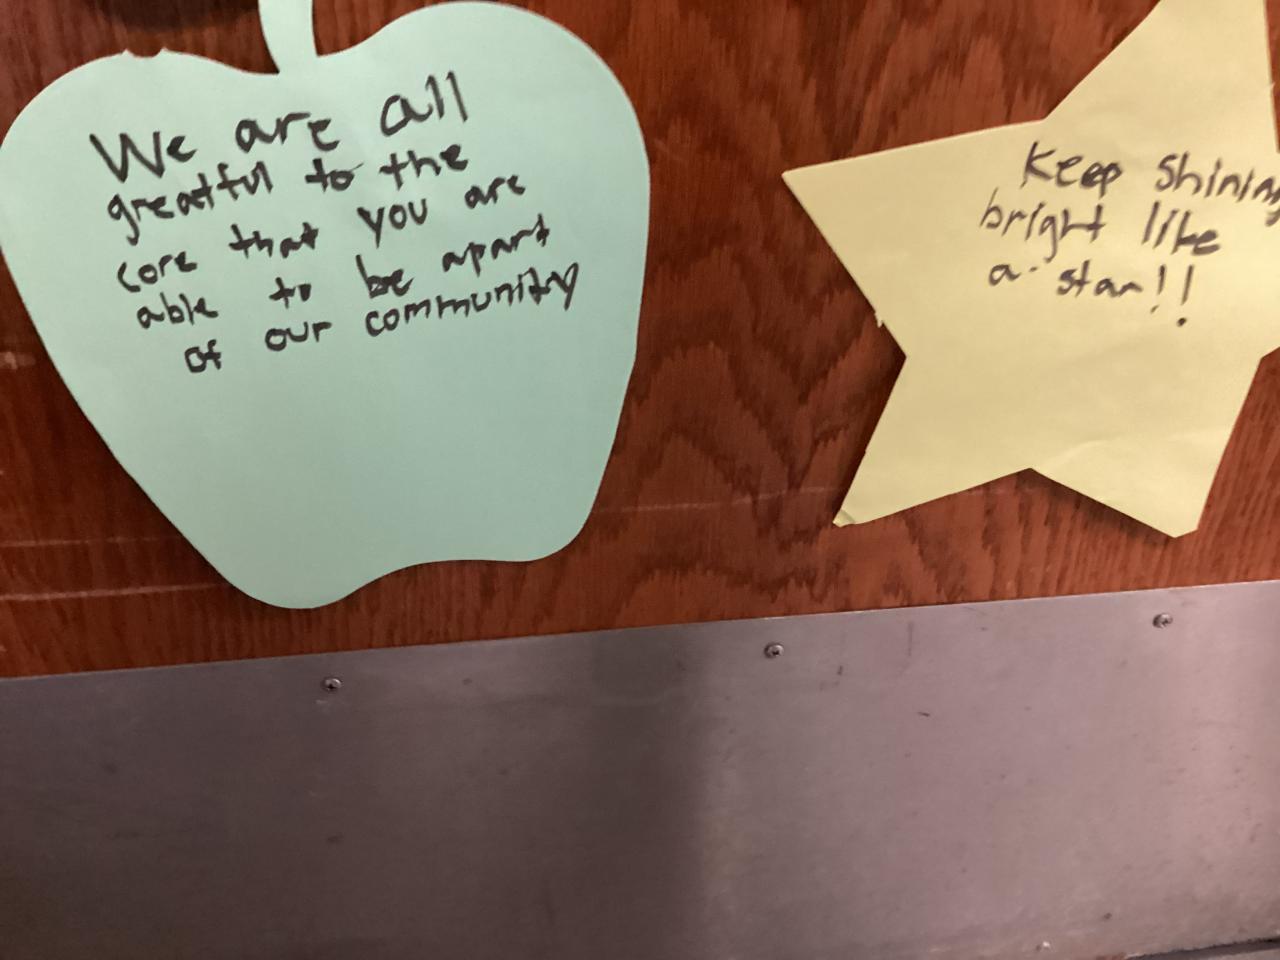 We are all
greatful to the
core that you are
able to be apart
of our community
Keep Shining
bright like
a star!!